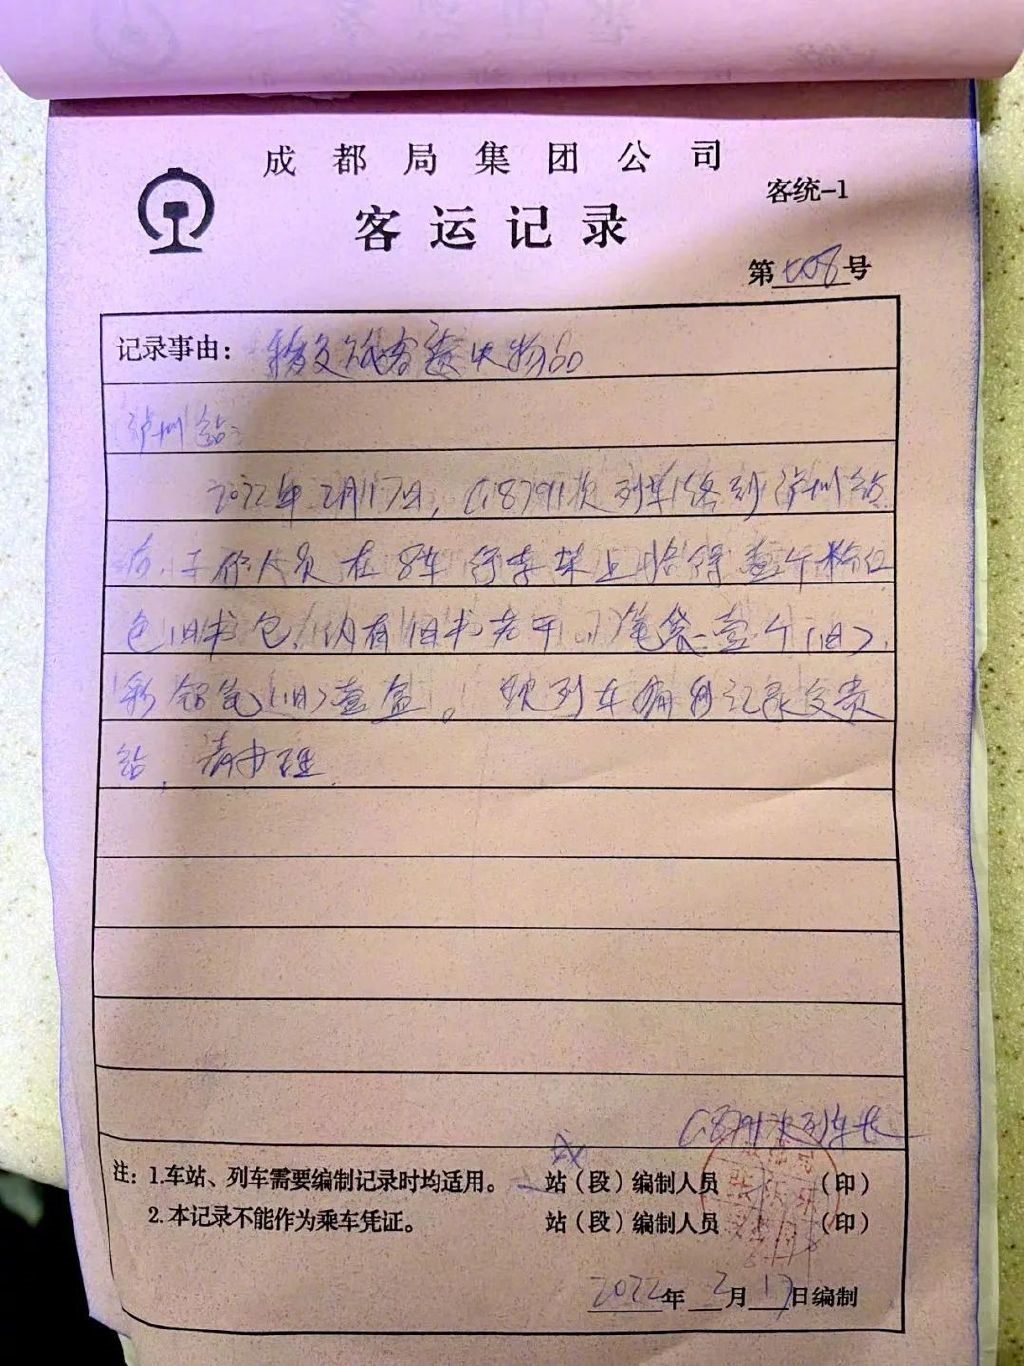 成都局集团公司
客统-1
客运记录
第 008 号
记录事由：移交旅客遗失物品
泸州站：
2022年2月17日，G8791次列车终到泸州站
后，工作人员在8车行李架上拾得壹个粉红
色旧书包，内有旧书若干，笔袋壹个（旧），
彩铅笔（旧）壹盒。现列车编制记录交贵
站，请办理
G8791次列车长
注：1.车站、列车需要编制记录时均适用。
站（段）编制人员（印）
2.本记录不能作为乘车凭证。
站（段）编制人员（印）
2022年2月17日编制